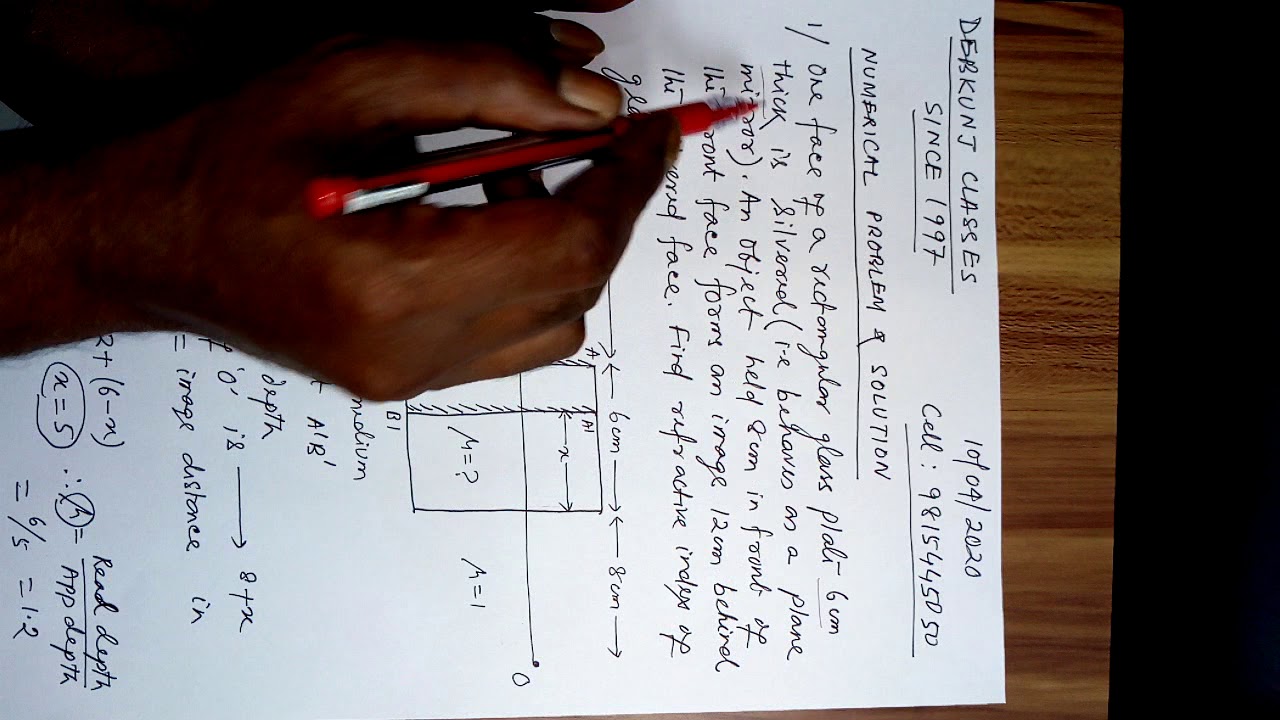 DEBKUNJ CLASSES
SINCE 1997
10/04/2020
Cell: 9815445050
NUMERICAL PROBLEM & SOLUTION
1/ One face of a rectangular glass plate 6cm
thick is silvered (i.e behaves as a plane
mirror). An object held 8cm in front of
the front face forms an image 12cm behind
the silvered face. Find refractive index of
← 6cm → ← 8cm →
A A'
x
O
μ=? μ=1
B'
medium
A'B'
depth
'O' is → 8+x
= image distance in
2+(6-x)
x=5 ∴ μ = Real depth
App depth
= 6/5 = 1.2